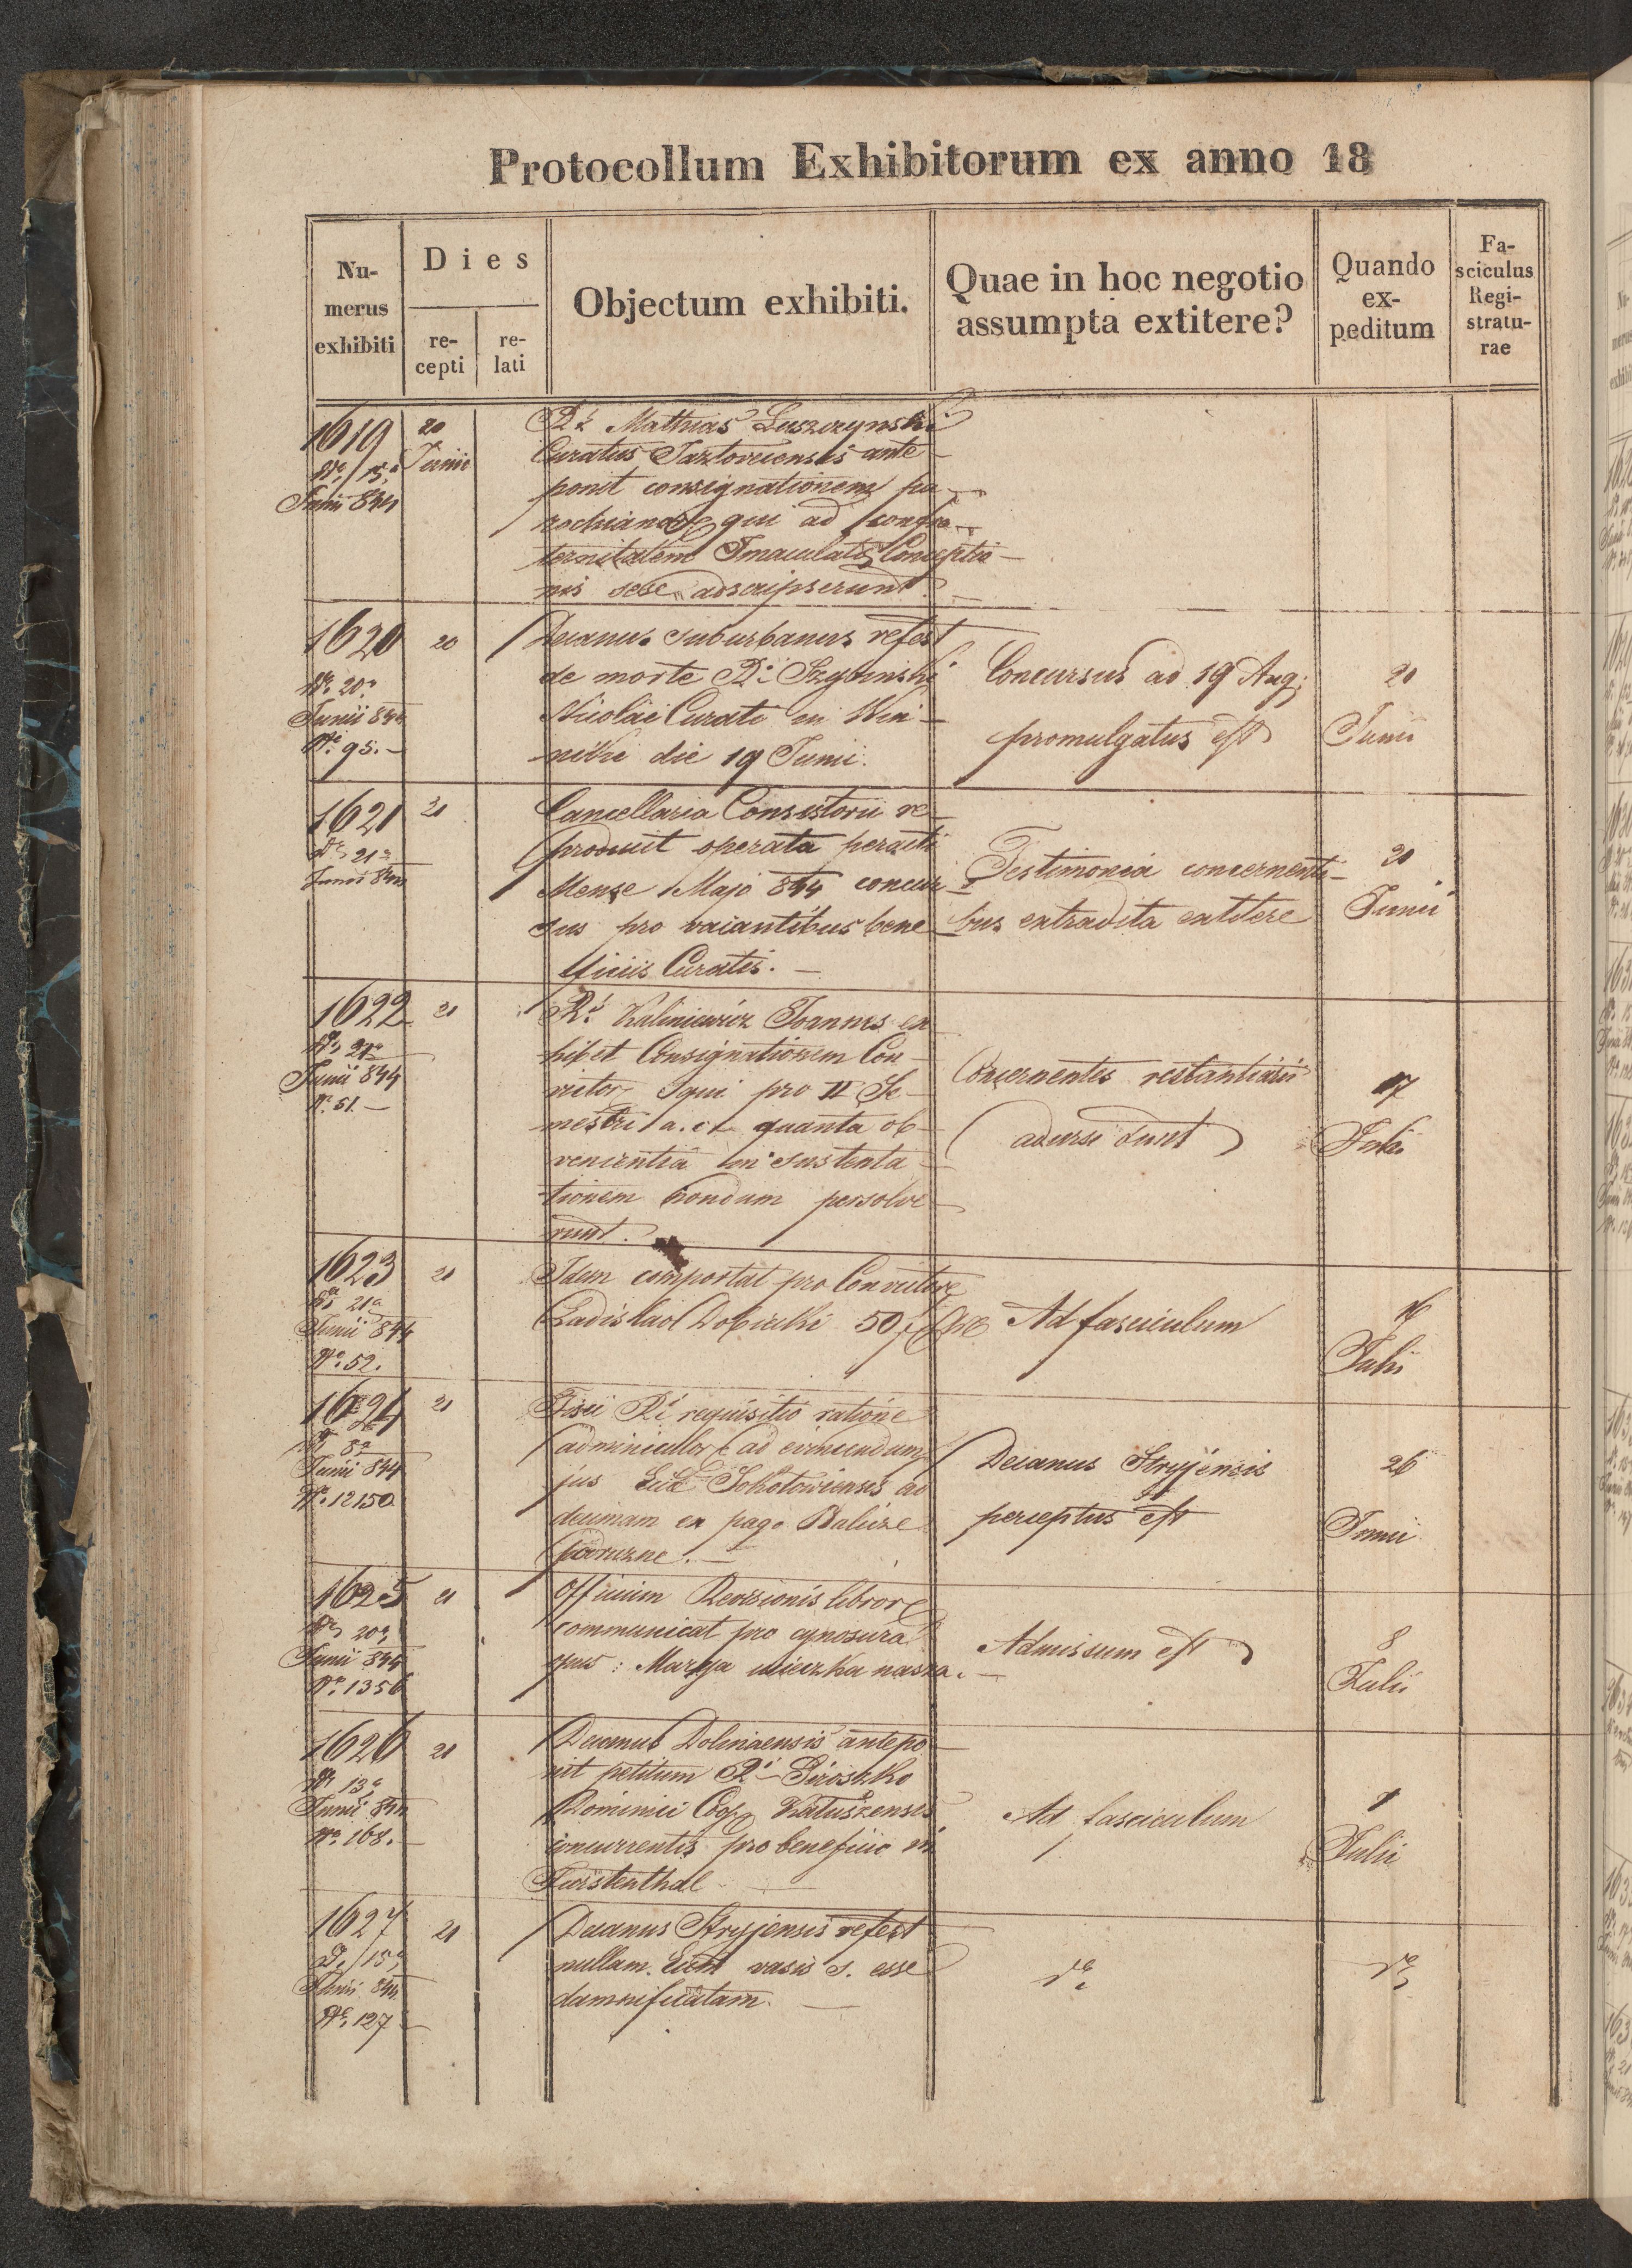 Protocollum Exhibitorum ex anno 18
Nu-
merus
exhibiti
Dies
re-
cepti
re-
lati
Objectum exhibiti.
Quae in hoc negotio
assumpta extitere?
Quando
ex-
peditum
Fa-
sciculus
Regi-
stratu-
rae
1619
15
Junii 844
20
Junii
Mathias Luszczynski
Curatus Jazloveciensis ante
ponit consignationem pa
rochianor qui ad confra
ternitatem Imaculatae Conceptio
nis sese adscripserunt
1620
20
Junii 844
No. 95.
20
Decanus suburbanus refert
de morte Ri Szybinski
Nicolai Curati in Win
niki die 19 Junii.
Concursus ad 19 Aug:
promulgatus est
20
Junii
1621
21
Junii 844
21
Cancellaria Consistorii re
producit operata peracti
Mense Majo 844 concur
sus pro vacantibus bene
ficiis Curatis.
Testimonia concernenti
bus extradita extitere
20
Junii
1622
21
Junii 844
No. 51.
21
Kaliniewicz Joannes ex
hibet Consignationem Con
victor qui pro II Se
mestri a. c. quanta ob
venientia in sustenta
tionem nondum persolve
runt.
Concernentes restantiarii
adursi sunt
17
Julii
1623
21
Junii 844
No. 52.
21
Idem comportat pro Convictore
Ladislao Dobicki 50 f
Ad fasciculum
Julii
1624
Junii 844
No. 12150
21
Fisci Ri requisitio ratione
adminiculor ad evincendum
jus Ecclae Sokolowiensis ad
decimam ex pago Balicze
podruzne.
Decanus Stryjensis
perceptus est
26
Junii
1625
20
Junii 844
No. 1356
21
Officium Revisionis libror
communicat pro cynosura
opus: Marya ucieczka nasza.
Admissum est
8
Julii
1626
13
Junii 844
No. 168.
21
Decanus Dolinaensis antepo
nit petitum Ri Piroszko
Dominici Coop Kaluszensis
concurrentis pro beneficio in
Furstenthal
Ad fasciculum
Julii
1627
15
Junii 844
No. 127
21
Decanus Stryjensis refert
nullam Eccl vasis s. esse
damnificatam.